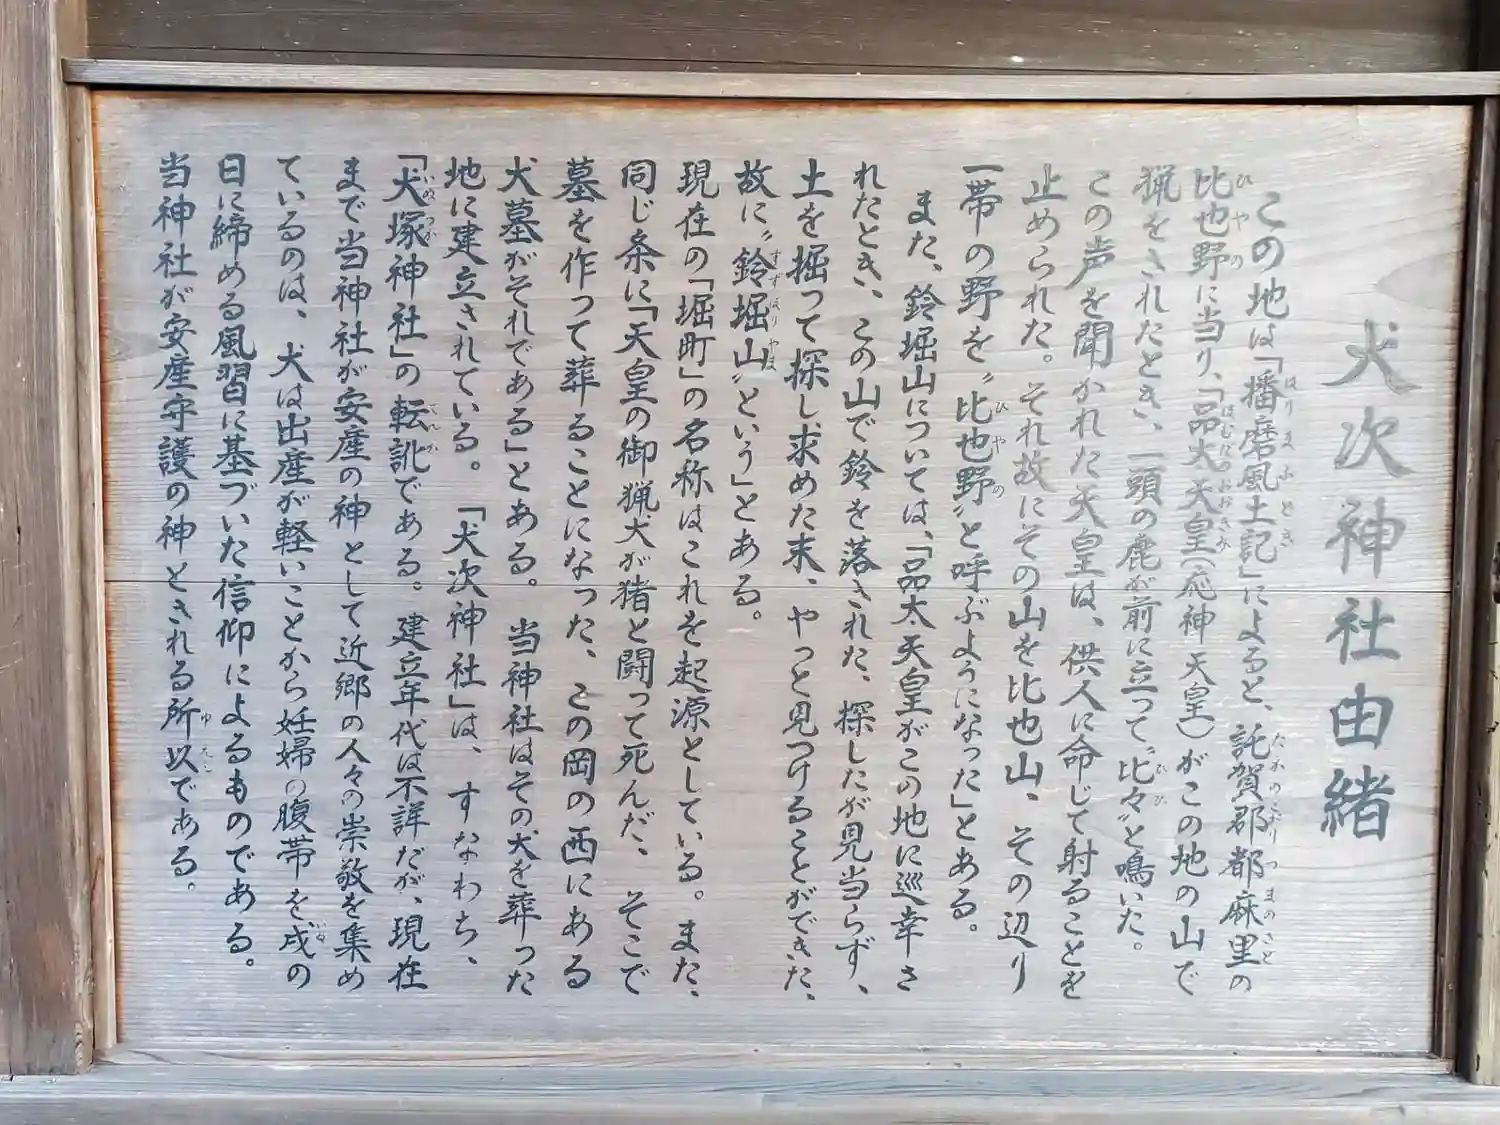 犬次神社由緒
この地は「播磨風土記」によると、託賀郡都麻里の
比也野に当り、「品太天皇（応神天皇）がこの地の山で
猟をされたとき、一頭の鹿が前に立って〝比々〟と鳴いた。
この声を聞かれた天皇は、供人に命じて射ることを
止められた。それ故にその山を比也山、その辺り
一帯の野を〝比也野〟と呼ぶようになった」とある。
また、鈴堀山については、「品太天皇がこの地に巡幸さ
れたとき、この山で鈴を落された、探したが見当らず、
土を掘って探し求めた末、やっと見つけることができた、
故に〝鈴堀山〟という」とある。
現在の「堀町」の名称はこれを起源としている。また、
同じ条に「天皇の御猟犬が猪と闘って死んだ、そこで
墓を作って葬ることになった、この岡の西にある
犬墓がそれである」とある。当神社はその犬を葬った
地に建立されている。「犬次神社」は、すなわち、
「犬塚神社」の転訛である。建立年代は不詳だが、現在
まで当神社が安産の神として近郷の人々の崇敬を集め
ているのは、犬は出産が軽いことから妊婦の腹帯を、戌の
日に締める風習に基づいた信仰によるものである。
当神社が安産守護の神とされる所以である。